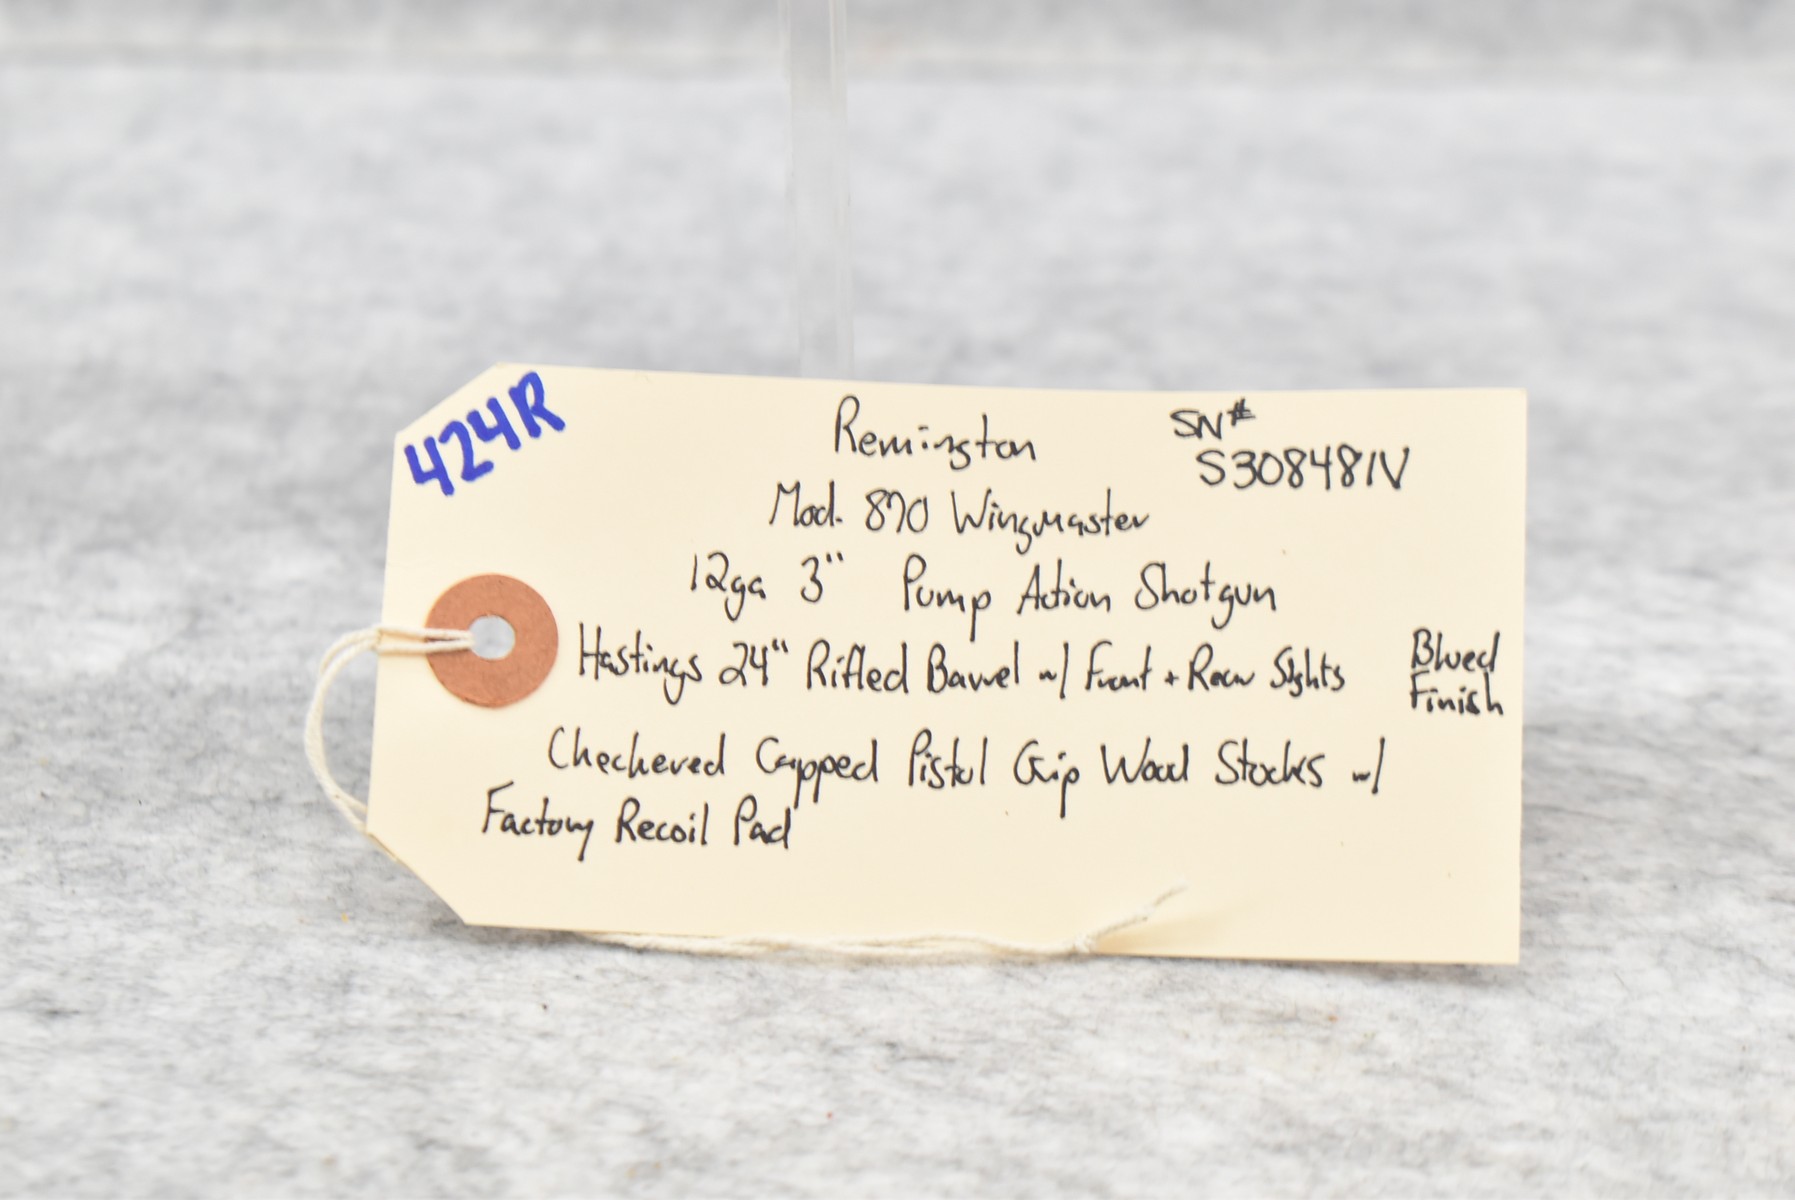 424R
Remington
SN#
S308481V
Mod. 870 Wingmaster
12ga 3" Pump Action Shotgun
Hastings 24" Rifled Barrel w/ Front + Rear Sights
Blued
Finish
Checkered Capped Pistol Grip Wood Stocks w/
Factory Recoil Pad